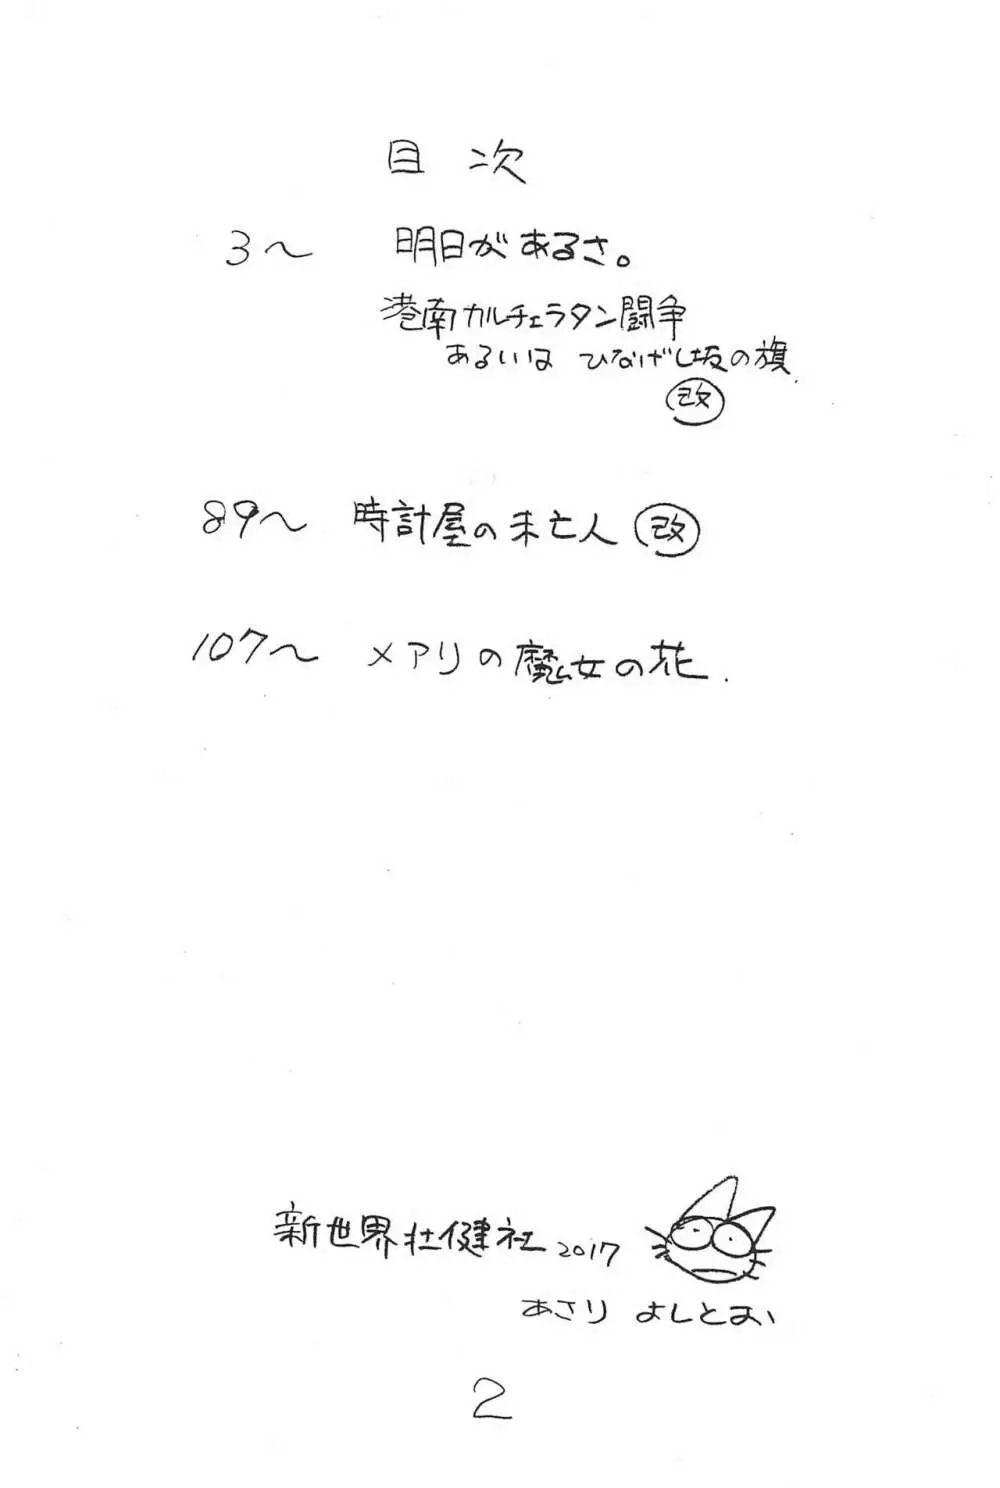 目次
3～ 明日があるさ。
港南カルチェラタン闘争
あるいは ひなげし坂の旗
改
89～ 時計屋の未亡人 改
107～ メアリの魔女の花.
新世界壮健社 2017
あさり よしとお
2